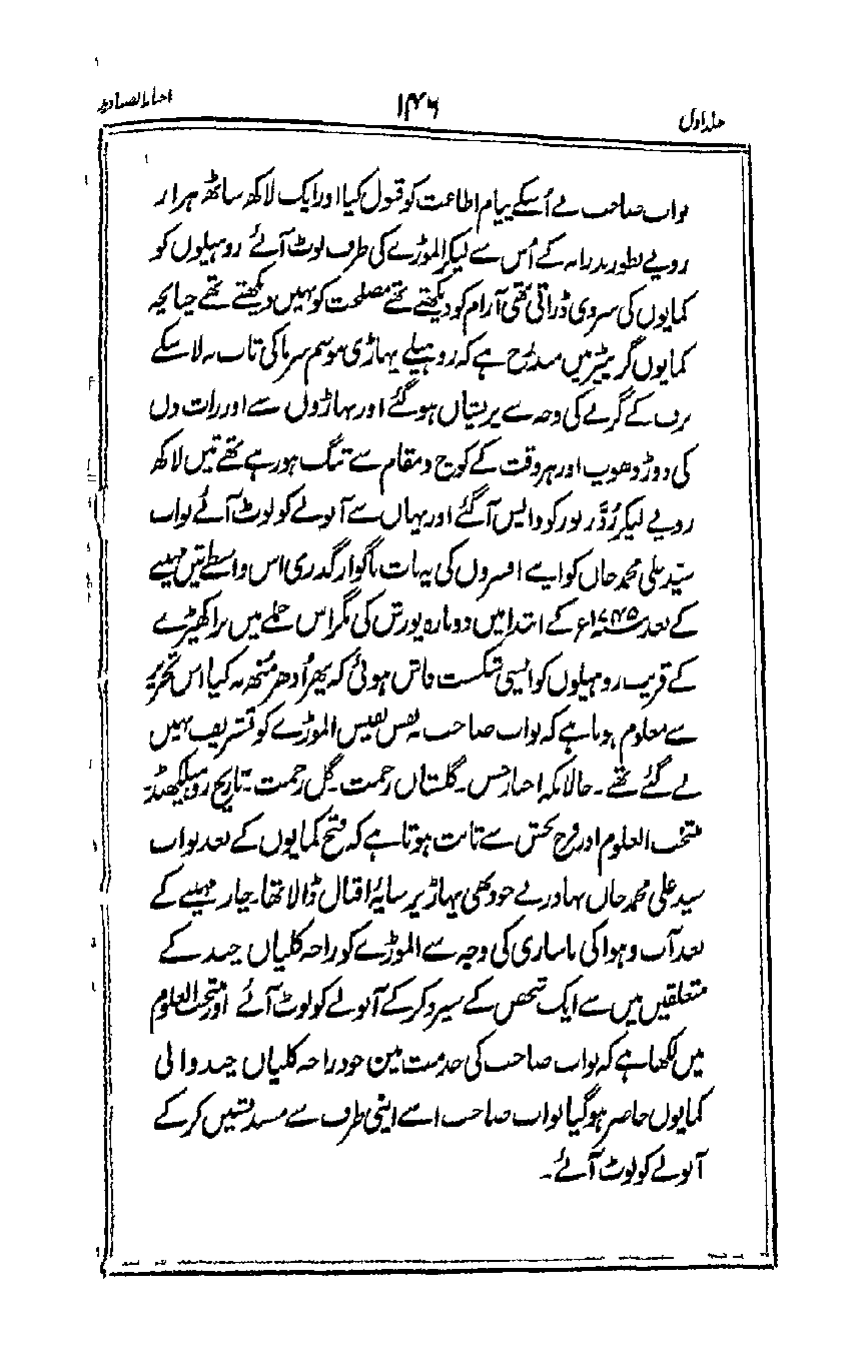 جلد اول
۱۴۶
اخبار الصنادید
نواب صاحب نے اُسکے پیام اطاعت کو قبول کیا اور ایک لاکھ ساٹھ ہزار
روپے بطور نذرانہ کے اُس سے لیکر الموڑے کی طرف لوٹ آئے روہیلوں کو
کمایوں کی سردی ڈراتی تھی آرام کو دیکھتے تھے مصلحت کو نہیں دیکھتے تھے چنانچہ
کمایوں گزیٹیر میں مندرج ہے کہ روہیلے پہاڑی موسم سرما کی تاب نہ لا سکے
برف کے گرنے کی وجہ سے پریشان ہو گئے اور پہاڑوں سے اور رات دن
کی دوڑ دھوپ اور ہر وقت کے کوچ و مقام سے تنگ ہو رہے تھے تین لاکھ
روپے لیکر رُدّرپور کو واپس آگئے اور یہاں سے آنولے کو لوٹ آئے نواب
سیّد علی محمد خاں کو اپنے افسروں کی یہ بات ناگوار گذری اس واسطے تین مہینے
کے بعد ۱۷۴۵ء کے ابتدا میں دوبارہ یورش کی مگر اس حملے میں راکھیڑے
کے قریب روہیلوں کو ایسی شکست فاش ہوئی کہ پھر اُدھر مُنھ نہ کیا اس تحریر
سے معلوم ہوتا ہے کہ نواب صاحب بہ نفس نفیس الموڑے کو تشریف نہیں
لے گئے تھے۔ حالانکہ اخبار حسن۔ گلستان رحمت۔ گل رحمت۔ تاریخ روہیلکھنڈ۔
منتخب العلوم اور فرح بخش سے ثابت ہوتا ہے کہ فتح کمایوں کے بعد نواب
سید علی محمد خاں بہادر نے خود بھی پہاڑ پر سایۂ اقبال ڈالا تھا۔ چار مہینے کے
بعد آب و ہوا کی ناسازی کی وجہ سے الموڑے کو راجہ کلیان چند کے
متعلقین میں سے ایک شخص کے سپرد کر کے آنولے کو لوٹ آئے اور منتخب العلوم
میں لکھا ہے کہ نواب صاحب کی خدمت میں خود راجہ کلیان چند والی
کمایوں حاضر ہو گیا نواب صاحب اسے اپنی طرف سے مسند نشیں کر کے
آنولے کو لوٹ آئے۔